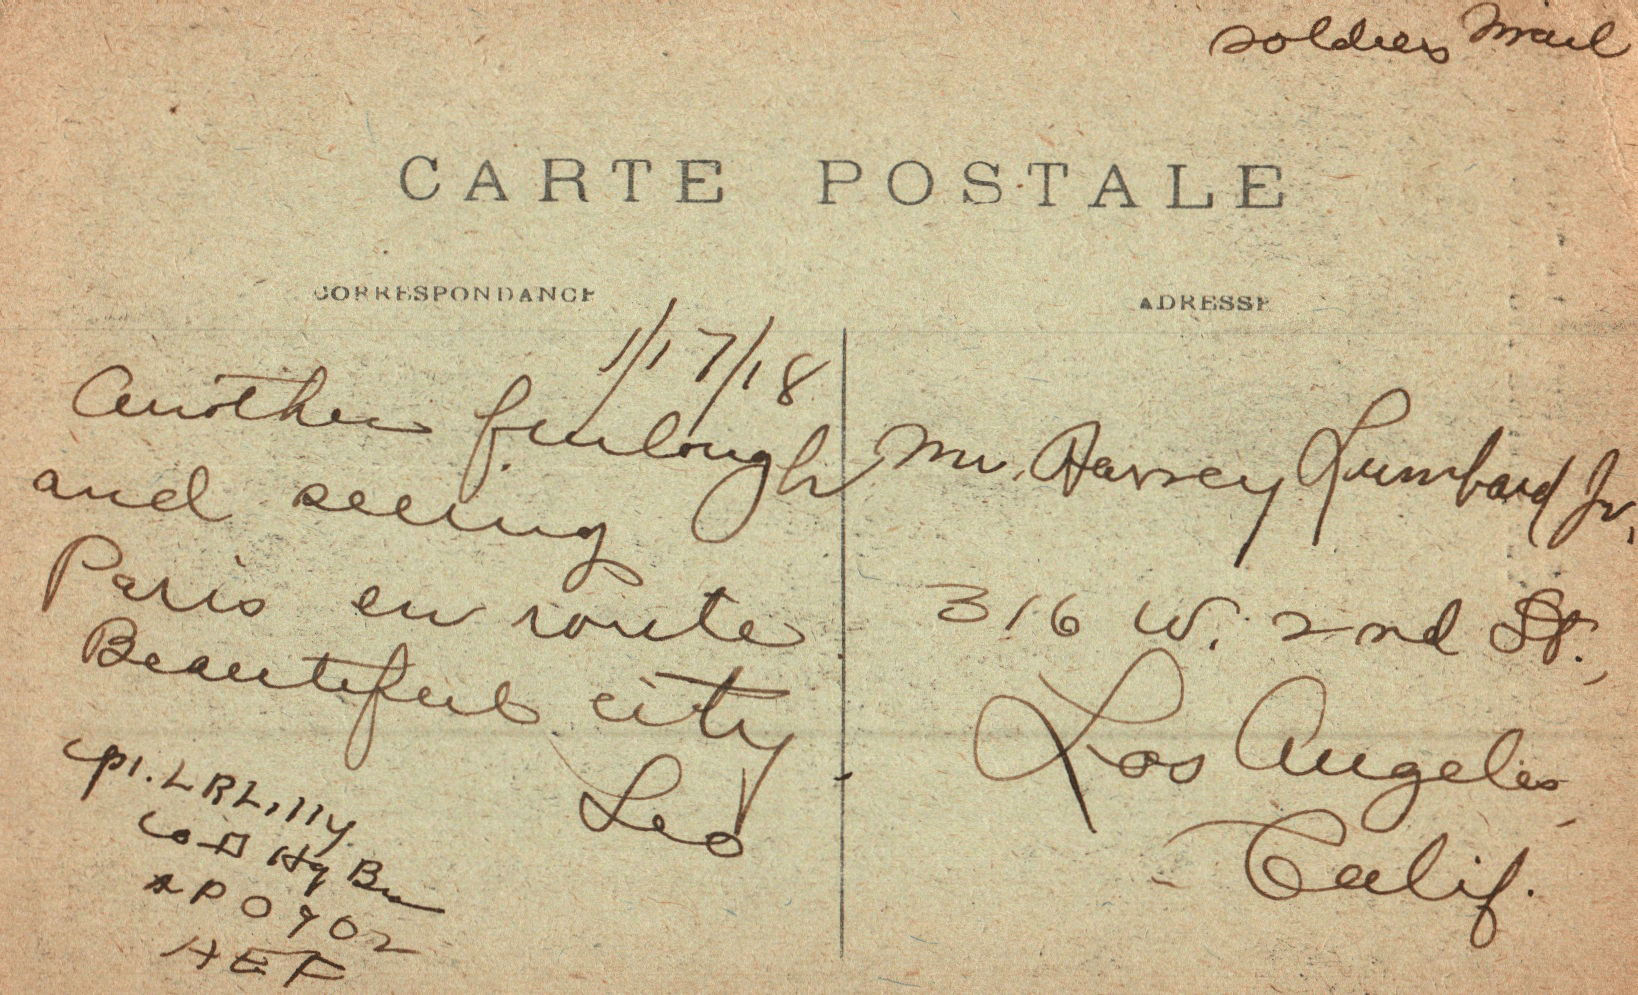 soldiers mail
CARTE POSTALE
CORRESPONDANCE
ADRESSE
1/17/18
Another furlough
and seeing
Paris en route
Beautiful city
Leo
Cpl. L R Lilly
Co D Hq Bn
APO 902
AEF
Mr. Harvey Lumbard Jr.
316 W. 2nd St.,
Los Angeles,
Calif.